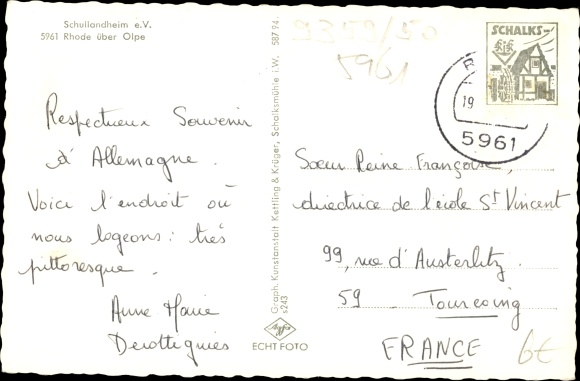 Schullandheim e.V.
5961 Rhode über Olpe
Respectueux Souvenir
d'Allemagne.
Voici l'endroit où
nous logeons : très
pittoresque.
Anne Marie
Derottignies
Graph. Kunstanstalt Kettling & Krüger, Schalksmühle i.W. 587 94.
s243
Agfa
ECHT FOTO
5961
SCHALKS-
K&K
19
5961
Sœur Reine Françoise,
directrice de l'école St Vincent
99, rue d'Austerlitz.
59 - Tourcoing
FRANCE
6€